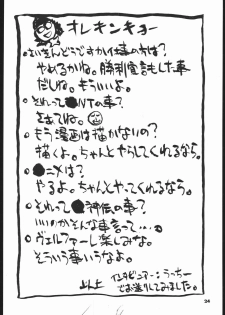 オレキンキョー
●さいきんどうですか仕事の方は?
やめるかね。勝利宣言もした事
だしね。もういいよ。
●それって●NTの事?
さあてね。
●もう漫画は描かないの?
描くよ。ちゃんとやらしてくれるなら。
●●ニメは?
やるよ。ちゃんとやってくれるなら。
●それって●神伝の事?
いいのかそんな事言って…。
●ヴェルファーレ楽しみな。
そういう事いうなよ。
以上 インタビュアー:うっちー
でお送りしてみました。
24